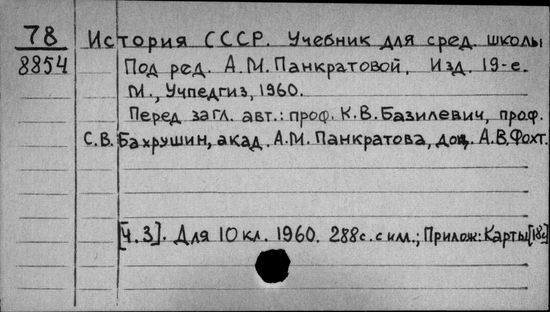 78
8854
История СССР. Учебник для сред. школы
Под ред. А.М.Панкратовой. Изд. 19-е.
М., Учпедгиз, 1960.
Перед загл. авт.: проф. К.В.Базилевич, проф.
С.В.Бахрушин, акад. А.М.Панкратова, доц. А.В.Фохт.
[Ч.3]. Для 10 кл. 1960. 288с. с илл.; Прилож: Карты